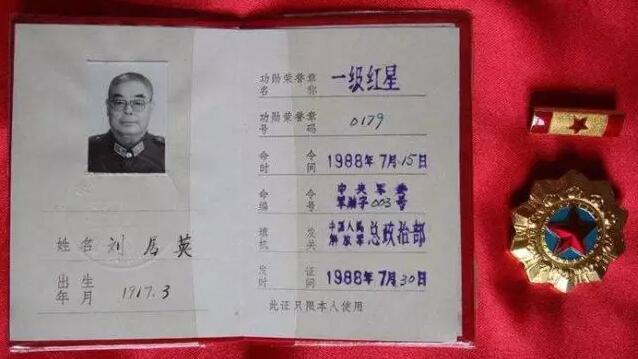 姓名 刘居英
出生年月 1917.3
功勋荣誉章名称 一级红星
功勋荣誉章号码 0179
命令时间 1988年7月15日
命令编号 中央军委 军勋字003号
填发机关 中国人民解放军 总政治部
发证时间 1988年7月30日
此证只限本人使用